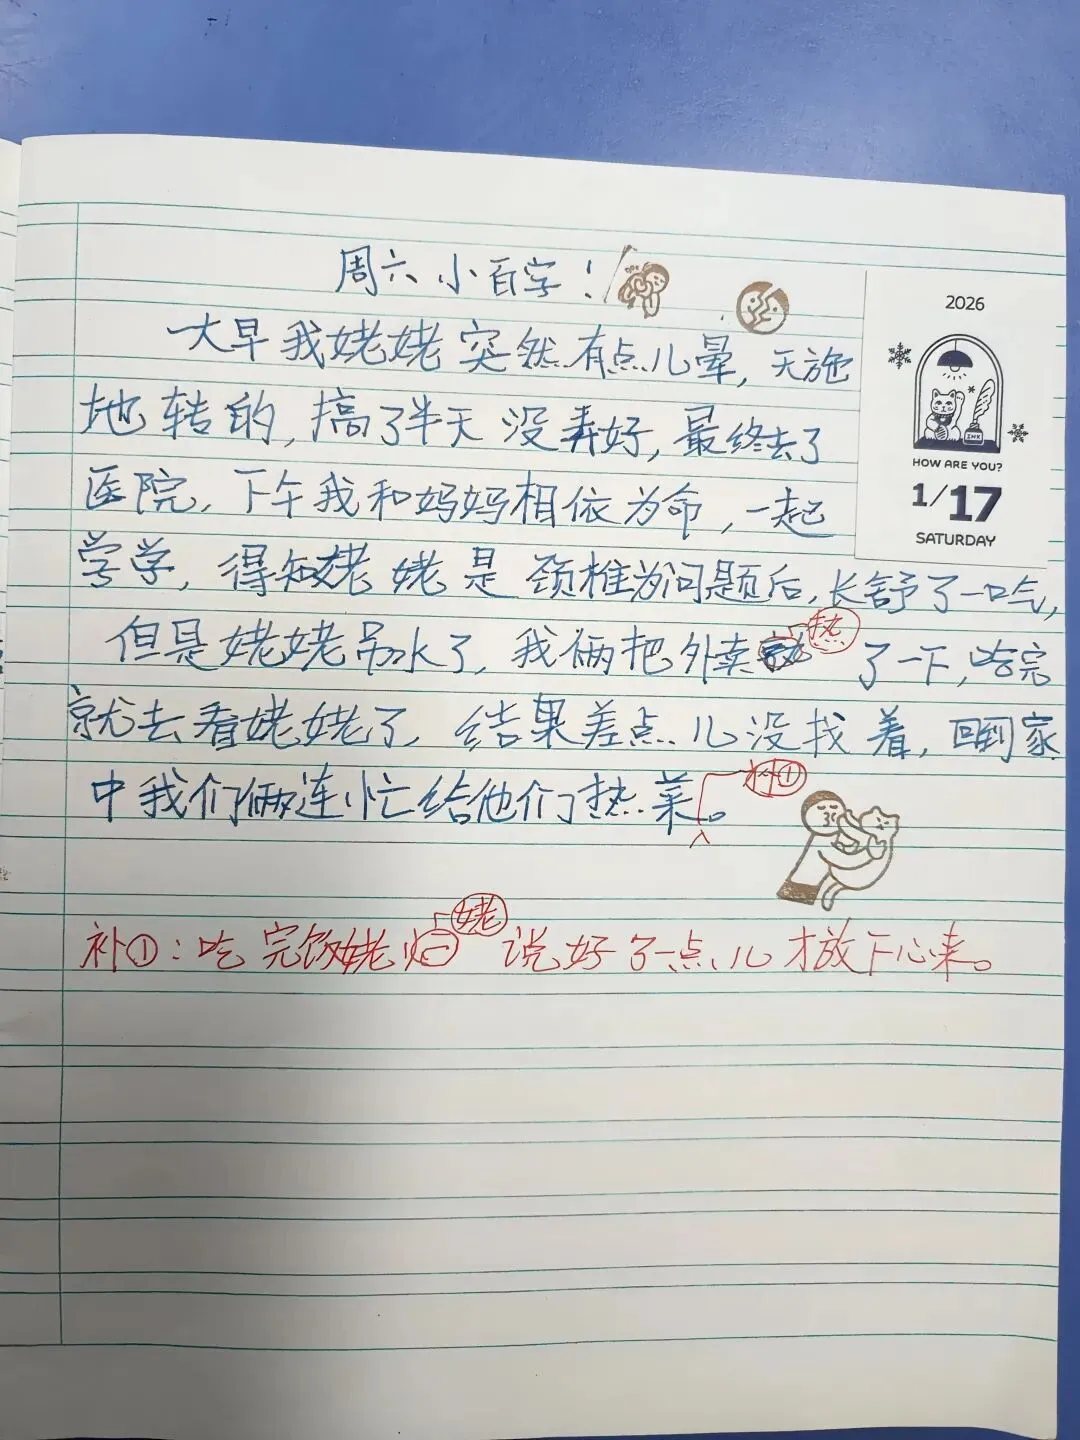 周六小百字！
2026
一大早我姥姥突然有点儿晕，天施
地转的，搞了半天没弄好，最终去了
INK
HOW ARE YOU?
医院，下午我和妈妈相依为命，一起
1/17
SATURDAY
学学，得知姥姥是颈椎为问题后，长舒了一口气，
但是姥姥吊水了，我俩把外卖热了一下，吃完
就去看姥姥了，结果差点儿没找着，回到家
中我们俩连忙给他们热菜。
补①
补①：吃完饭姥姥说好了一点儿才放下心来。